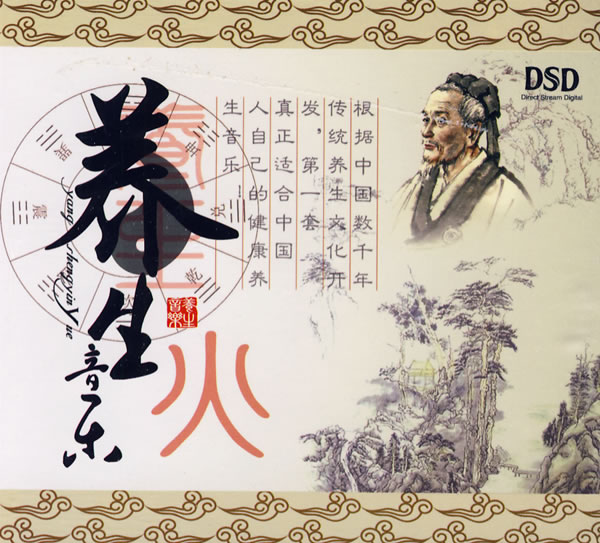 DSD
Direct Stream Digital
根据中国数千年
传统养生文化开
发，第一套
真正适合中国
人自己的健康养
生音乐
养生
音乐
Yang shengyin Yue
養生
音樂
火
震
兑
乾